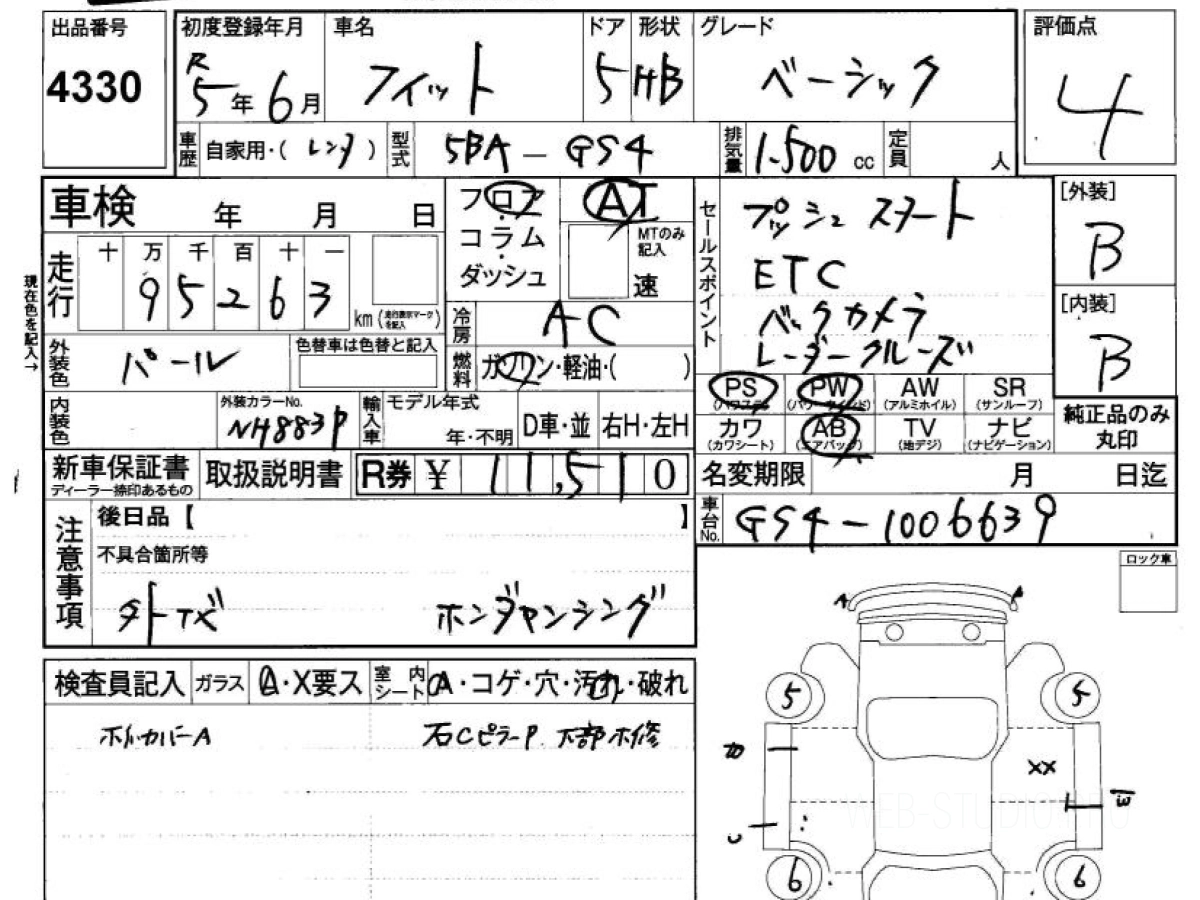 出品番号 初度登録年月 車名 ドア 形状 グレード 評価点
4330 R5年6月 フィット 5 HB ベーシック 4
車歴 自家用・( レンタ ) 型式 5BA-GS4 排気量 1.500 cc 定員 人
車検 年 月 日 フロア AT セールスポイント プッシュスタート [外装]
走行 十 万 千 百 十 一 コラム MTのみ記入 ETC B
9 5 2 6 3 km (走行表示マークを記入) ダッシュ 速 バックカメラ [内装]
現在色を記入→ 冷房 AC レーダークルーズ B
外装色 パール 色替車は色替と記入 燃料 ガソリン・軽油・( )
PS (パワステ) PW (パワーウインドウ) AW (アルミホイル) SR (サンルーフ) 純正品のみ丸印
内装色 外装カラーNo. NH883P 輸入車 モデル年式 年・不明 D車・並 右H・左H
カワ (カワシート) AB (エアバッグ) TV (地デジ) ナビ (ナビゲーション)
新車保証書 ディーラー捺印あるもの 取扱説明書 R券 ¥ 11,510 名変期限 月 日迄
注意事項 後日品【 】 車台No. GS4-1006639
不具合箇所等 ロック車
ホンダセンシング A A
検査員記入 ガラス A・X要ス 室内シート A・コゲ・穴・汚れ・破れ 5 5
ホイルカバーA 右CピラーP 下部ホ修
XX
WEB-STUDIO.PRO
6 6